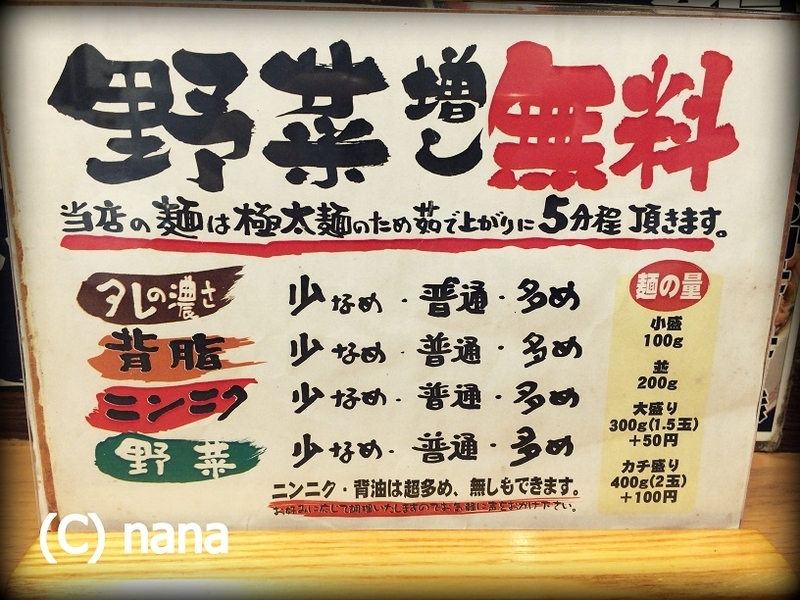 野菜増し無料
当店の麺は極太麺のため茹で上がりに5分程頂きます。
タレの濃さ 少なめ・普通・多め
背脂 少なめ・普通・多め
ニンニク 少なめ・普通・多め
野菜 少なめ・普通・多め
ニンニク・背油は超多め、無しもできます。
お好みに応じて調理いたしますのでお気軽に声をおかけ下さい。
麺の量
小盛
100g
並
200g
大盛り
300g(1.5玉)
+50円
カチ盛り
400g(2玉)
+100円
(C) nana